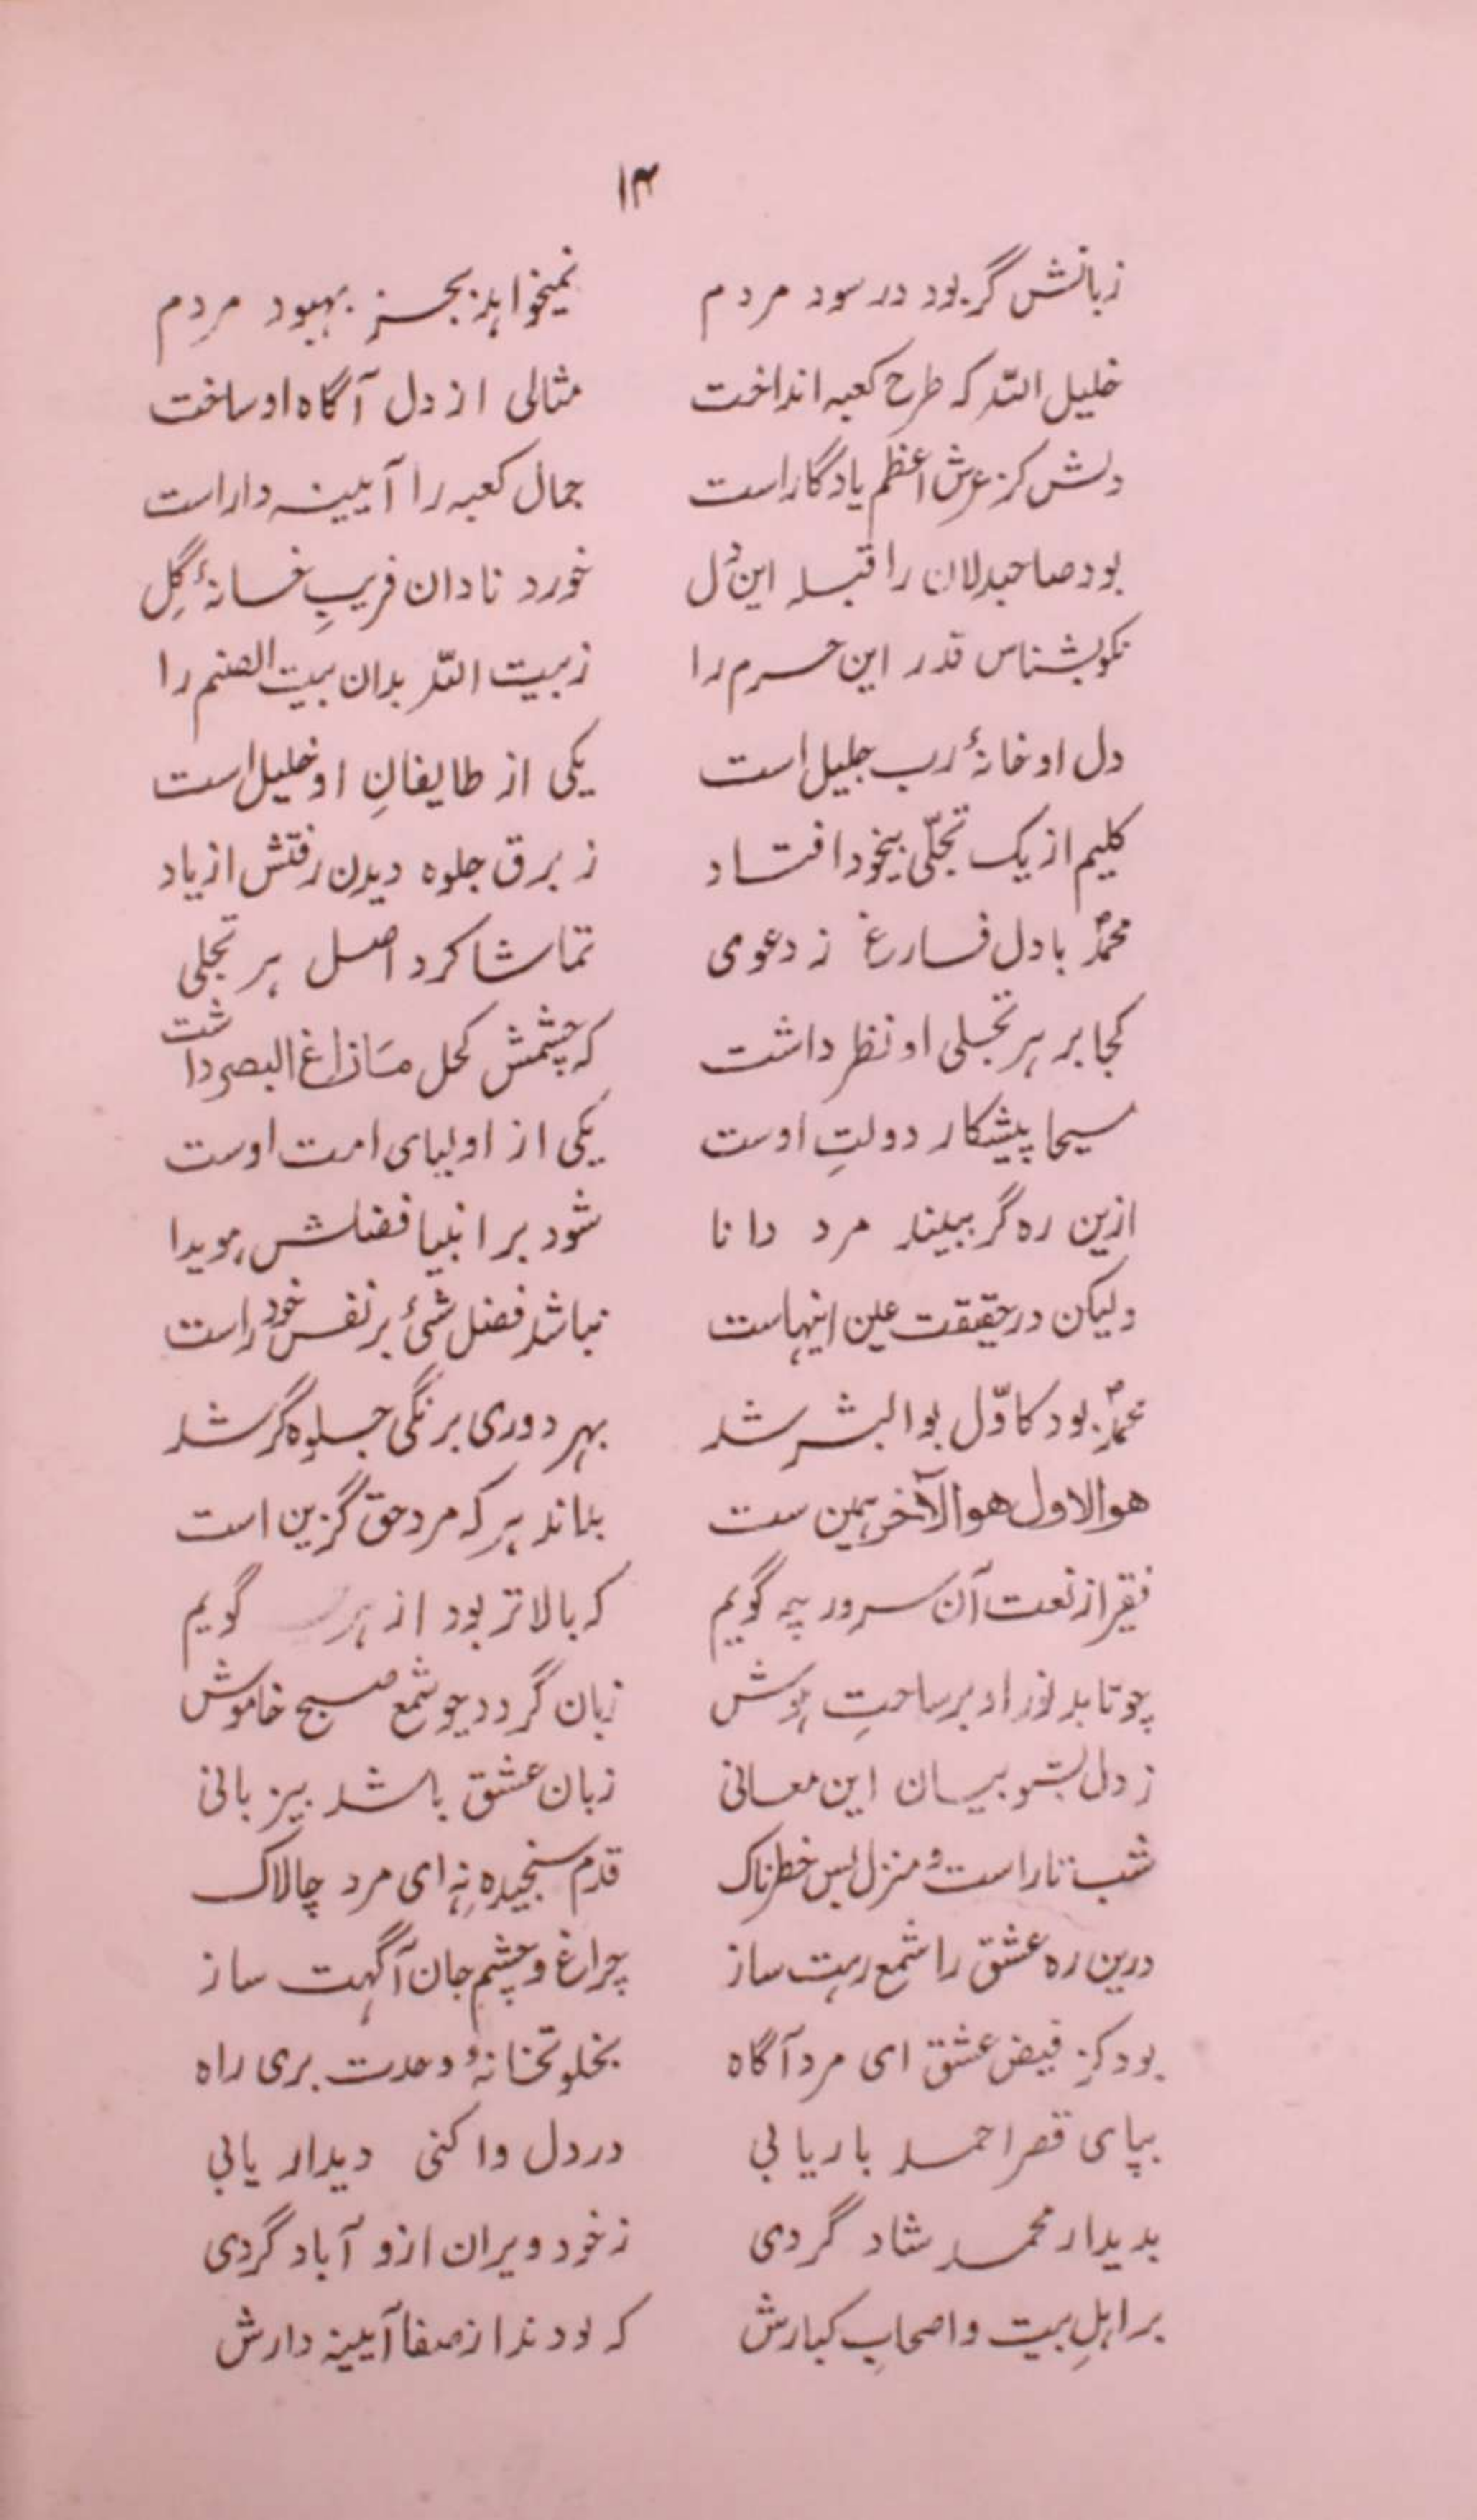 ۱۴
زبانش گر بود در سود مردم نمیخواهد بجز بهبود مردم
خلیل اللّه که طرح کعبه انداخت مثالی از دل آگاه او ساخت
دلش کز عرش اعظم یادگار است جمال کعبه را آیینه دار است
بود صاحبدلان را قبله این دل خورد نادان فریبِ خانهٔ گِل
نکو بشناس قدر این حرم را ز بیت اللّه بدان بیت الصنم را
دل او خانهٔ رب جلیل است یکی از طایفانِ او خلیل است
کلیم از یک تجلّی بیخود افتاد ز برق جلوه دیدن رفتش از یاد
محمدؐ با دل فارغ ز دعوی تماشا کرد اصل هر تجلی
کجا بر هر تجلی او نظر داشت که چشمش کحل مَازاغ البصر داشت
مسیحا پیشکار دولتِ اوست یکی از اولیای امت اوست
ازین ره گر ببیند مرد دانا شود بر انبیا فضلش هویدا
ولیکن در حقیقت عین اینهاست نباشد فضل شیٔ بر نفس خود راست
محمدؐ بود کاوّل بوالبشر شد بهر دوری برنگی جلوه گر شد
هوالاول هوالآخر همین ست بداند هر که مرد حق گزین است
فقیر از نعت آن سرور چه گویم که بالاتر بود از هر گویم
چو تابد نور او بر ساحتِ هوش زبان گردد چو شمع صبح خاموش
ز دل بشنو بیان این معانی زبان عشق باشد بیزبانی
شب تار است و منزل بس خطرناک قدم سنجیده نِه ای مرد چالاک
درین ره عشق را شمع رهت ساز چراغ و چشم جان آگهت ساز
بود کز فیض عشق ای مرد آگاه بخلوتخانهٔ وحدت بری راه
بپای قصر احمد باریابی در دل وا کنی دیدار یابی
بدیدار محمد شاد گردی ز خود ویران ازو آباد گردی
بر اهلِ بیت و اصحابِ کبارش که بودند از صفا آیینه دارش